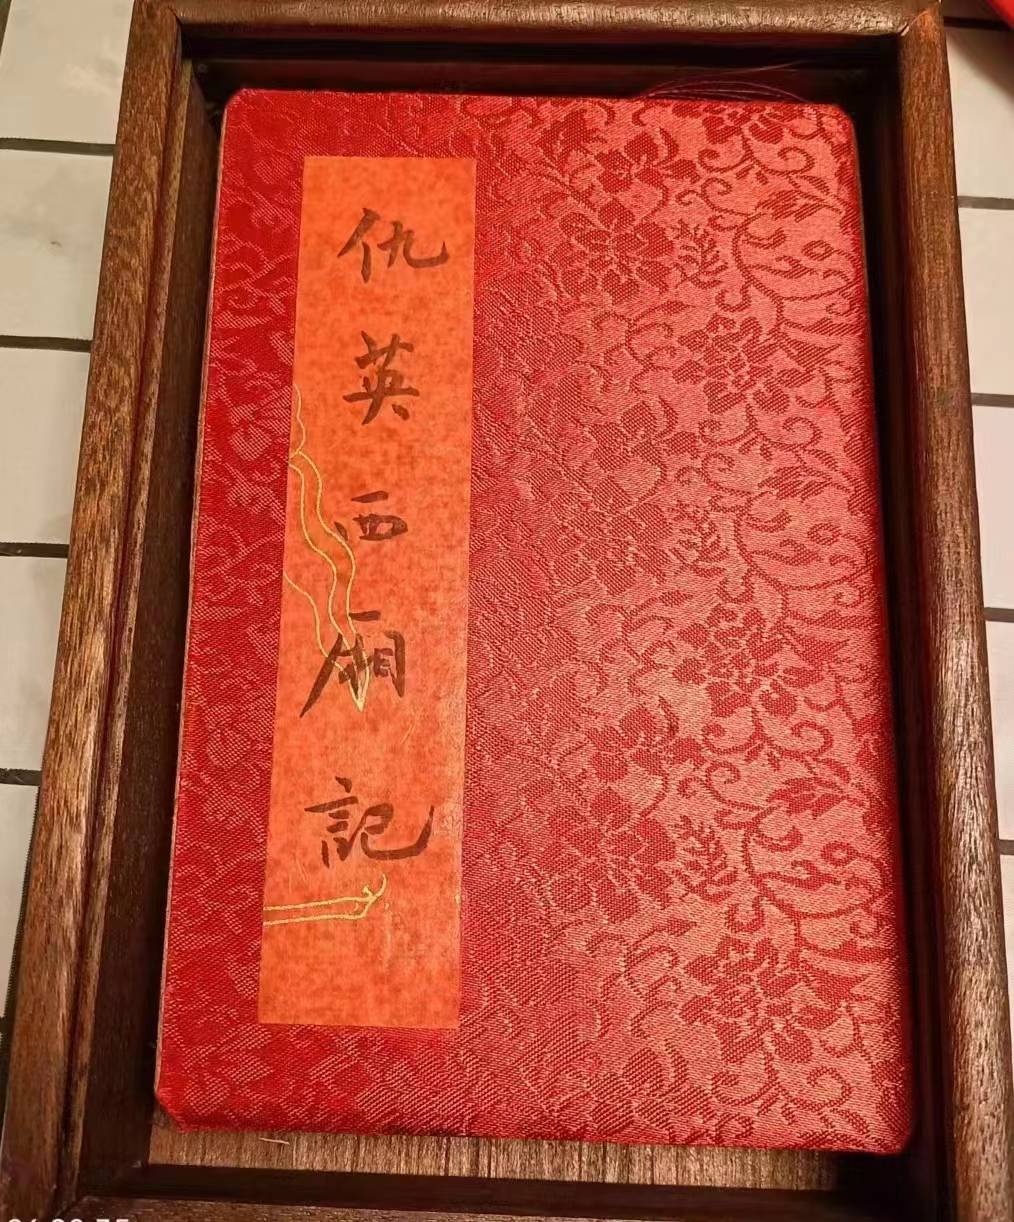 仇英西厢記